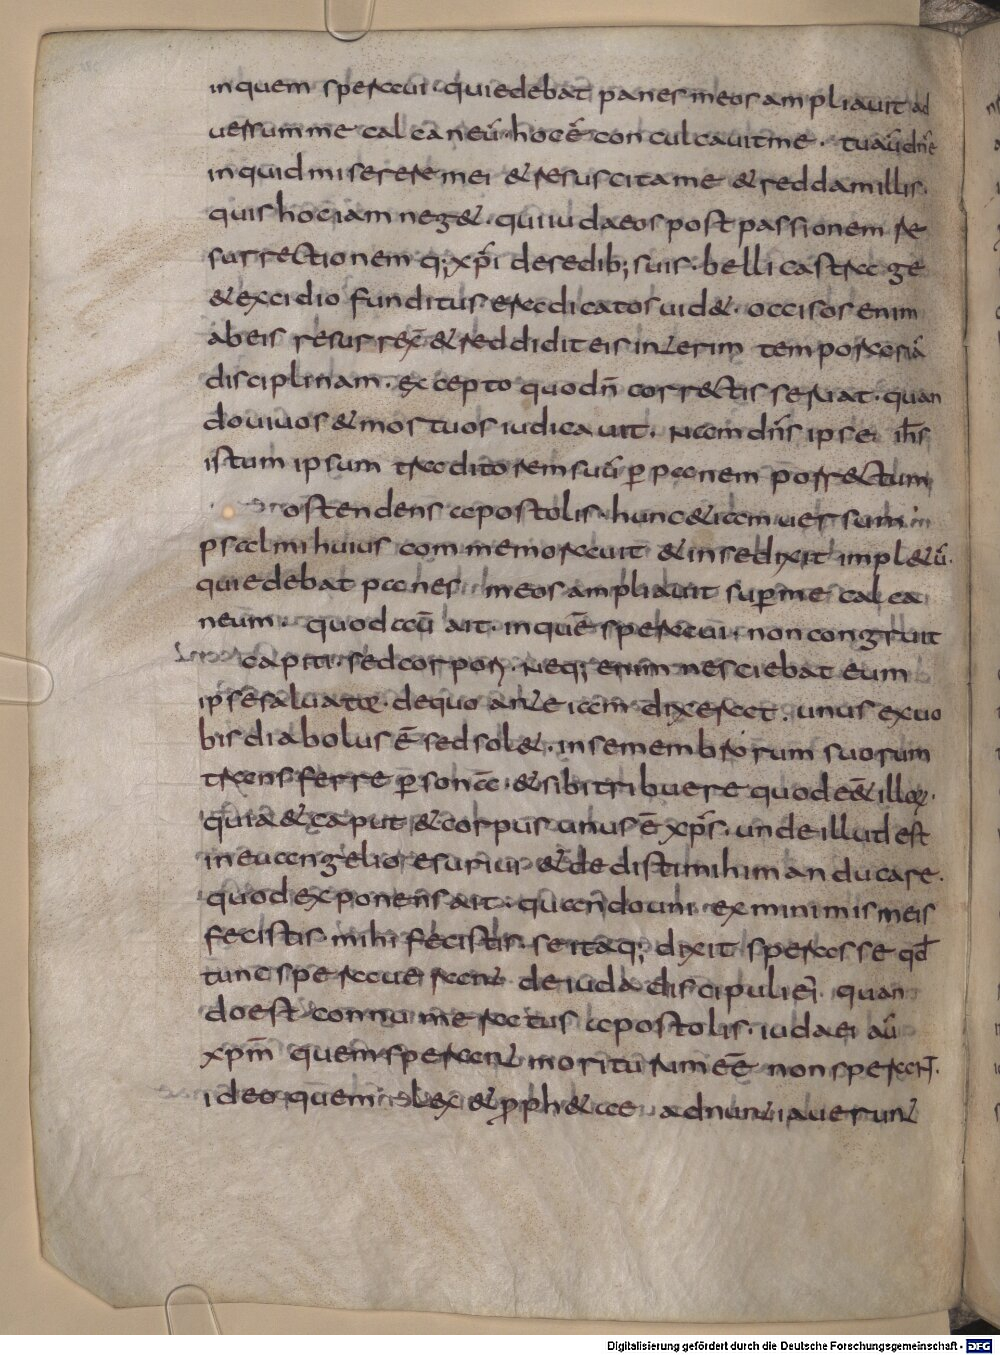 inquem speraui · qui edebat panes meos ampliauit ad
uersum me calcaneū · hoc ē conculcauit me · tu aū dn̄e
inquid miserere mei & resuscita me & reddam illis ·
quis hoc iam neg& · qui iudaeos post passionem re
surrectionem q; xp̄i de sedib; suis · belli castrage
& excidio funditus eradicatos uid& · occisos enim
ab eis resurrex̄ & reddidit eis interim temporariā
disciplinam · excepto quod n̄ correctis seruat · quan
do uiuos & mortuos iudicauit · Nam dn̄s ipse ih̄s
istum ipsum traditorem suū p̱ panem porrectum
ostendens apostolis · hunc & iam uersum in
psalmi huius commemorauit & in se dixit impl&ū ·
qui edebat panes meos ampliauit sup̱ me calca
neum · quod aū ait · in quē speraui · non congruit
capiti · sed corpori · Neq; enim nesciebat eum
ipse saluator · de quo ante iam dixerat · unus ex uo
bis diabolus ē sed sol& · in se membrorum suorum
transferre p̱sonā · & sibi tribuere quod e&̄ illoꝝ ·
quia & caput & corpus unus ē xp̄s · unde illud est
in euangelio esuriui · & dedistis mihi manducare ·
quod exponens ait · quando uni ex minimis meis
fecistis · mihi fecistis · se itaq; dixit sperasse qd̄
tunc sperauerant de iuda discipuli ei · quan
do est connumeratus apostolis · iudaei aū
xp̄m quem sperant moriturum eē non sperant ·
ideo quem lex & p̱ph&ae adnuntiauerunt
Digitalisierung gefördert durch die Deutsche Forschungsgemeinschaft - DFG